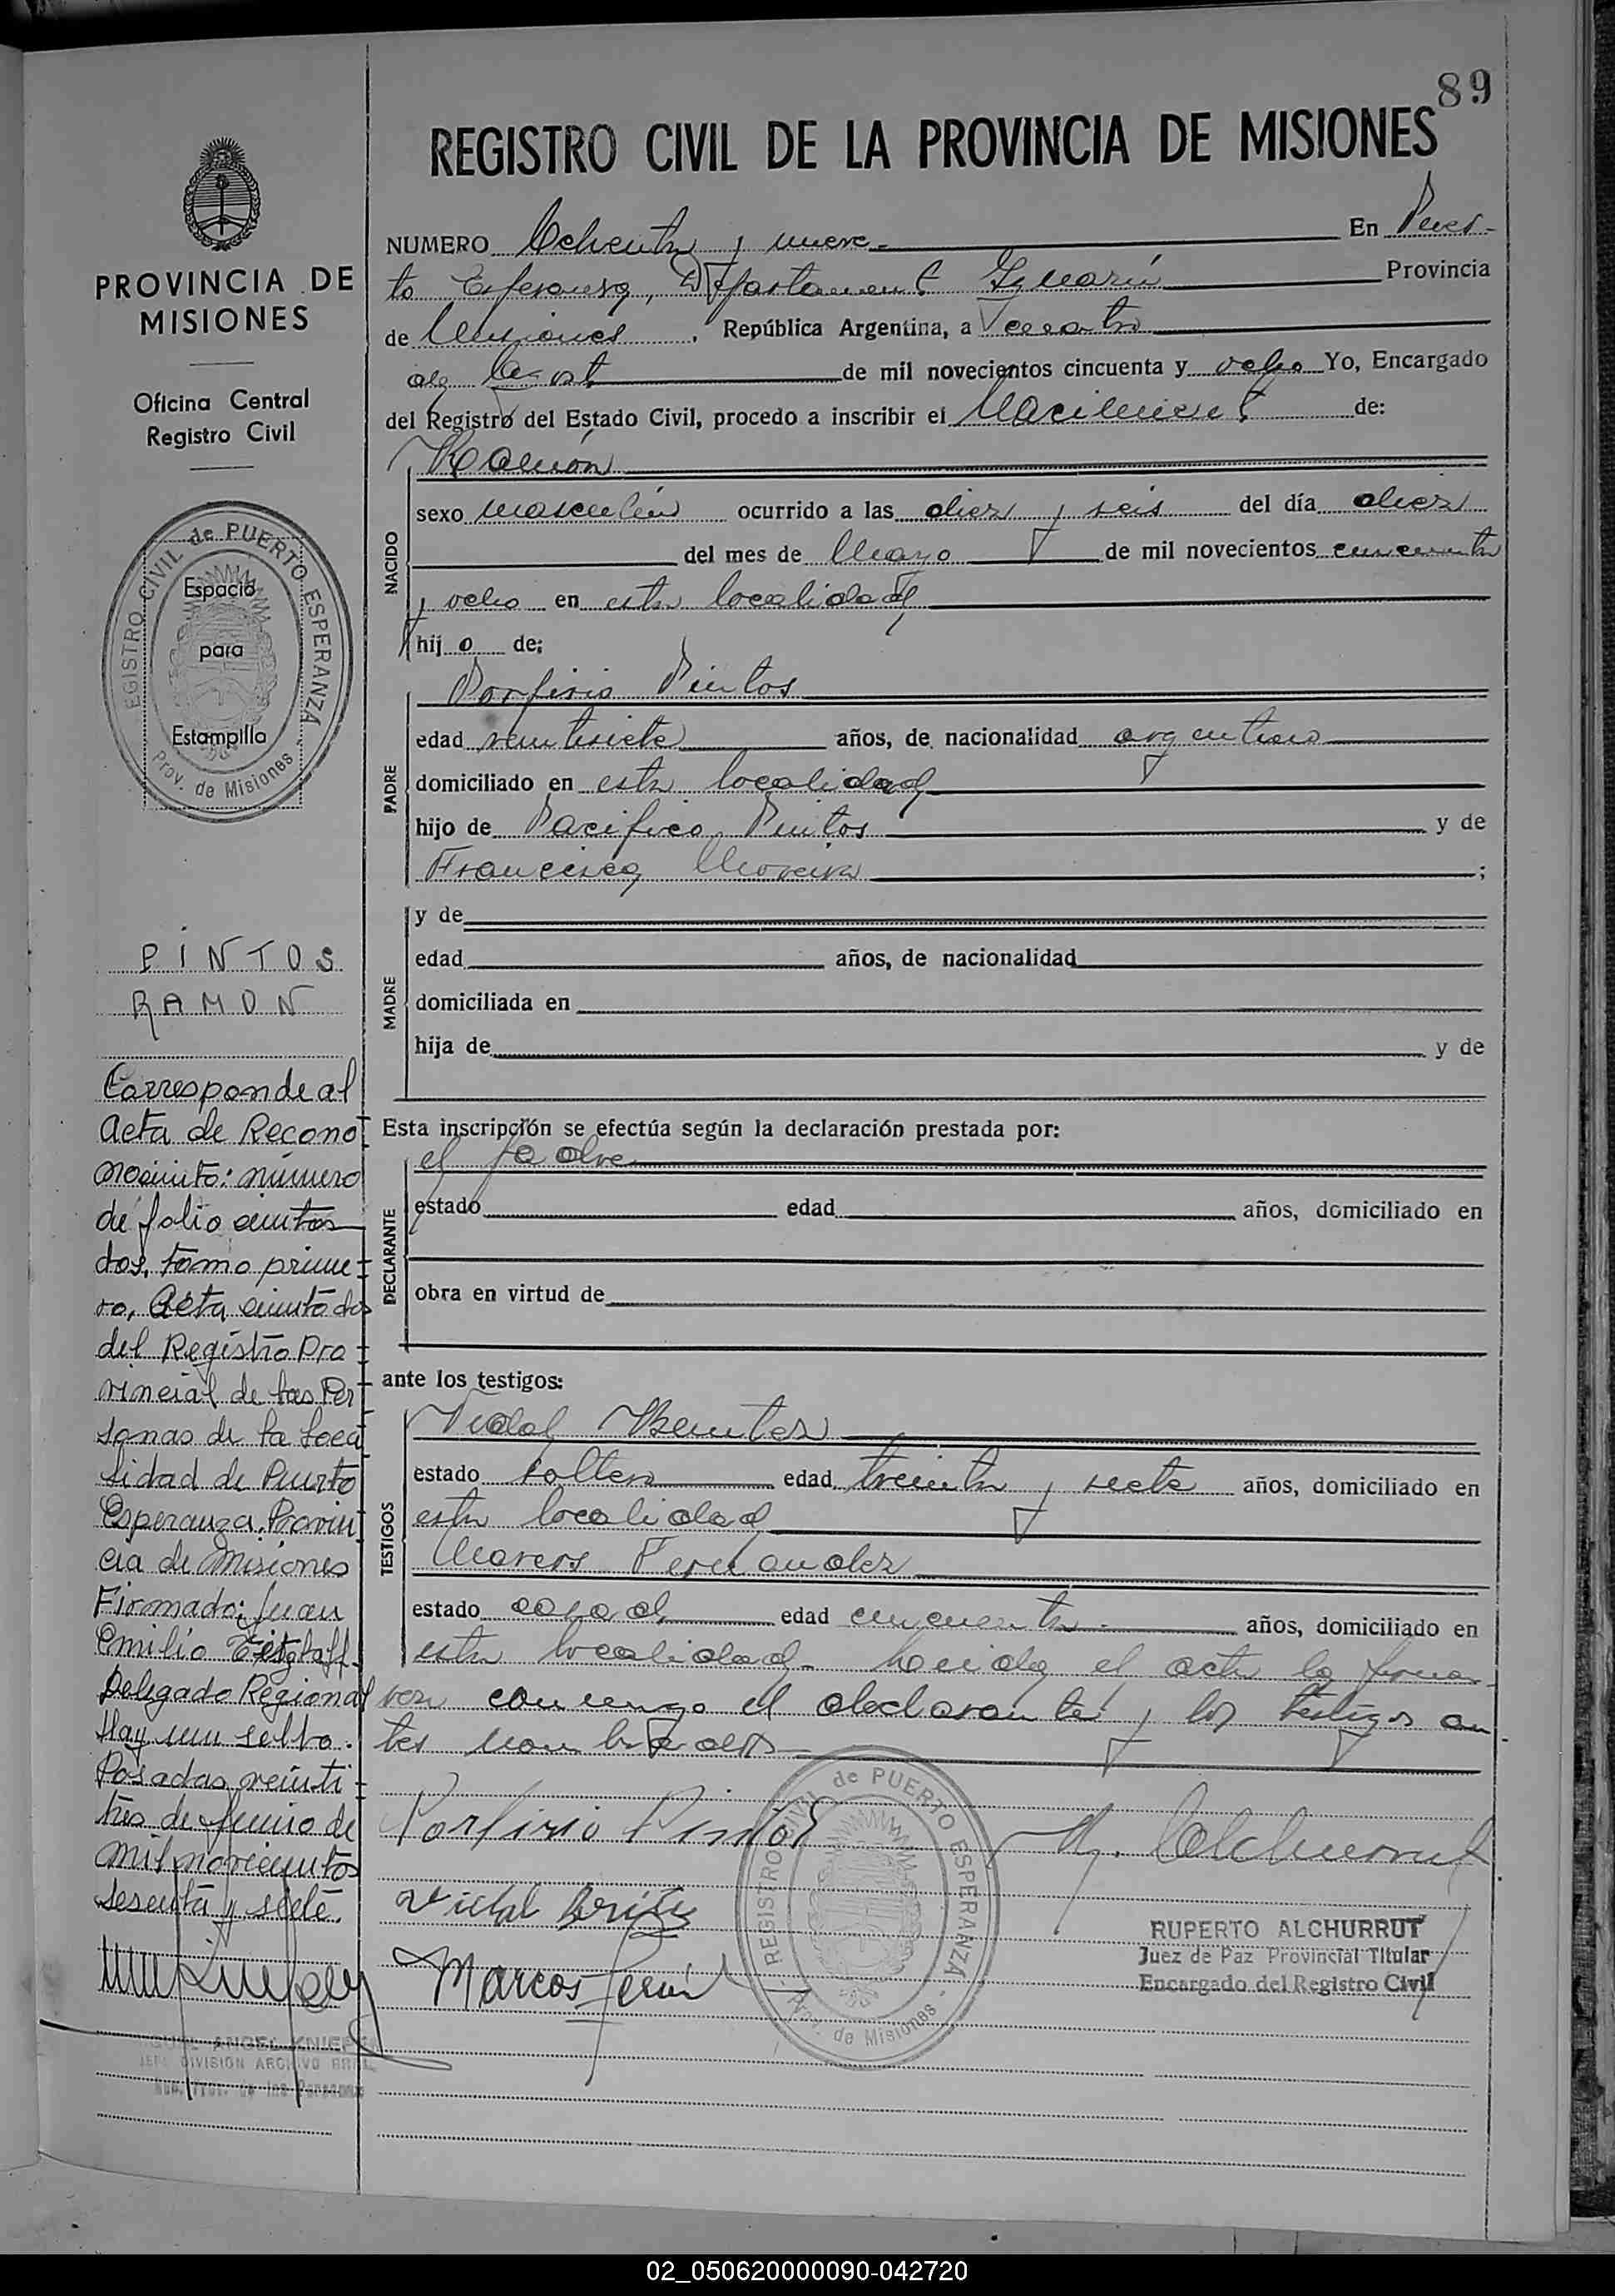 89
REGISTRO CIVIL DE LA PROVINCIA DE MISIONES
NUMERO Ochenta y nueve En Puer-
to Esperanza, Departamento Iguazú Provincia
de Misiones, República Argentina, a cuatro
de Agosto de mil novecientos cincuenta y ocho Yo, Encargado
del Registro del Estado Civil, procedo a inscribir el Nacimiento de:
NACIDO
Ramón
sexo masculino ocurrido a las diez y seis del día diez
del mes de Mayo de mil novecientos cincuenta
y ocho en esta localidad
hijo de:
PADRE
Porfirio Pintos
edad veintisiete años, de nacionalidad argentino
domiciliado en esta localidad
hijo de Pacifico Pintos y de
Francisca Moreira ;
MADRE
y de
edad años, de nacionalidad
domiciliada en
hija de y de
Esta inscripción se efectúa según la declaración prestada por:
DECLARANTE
el padre
estado edad años, domiciliado en
obra en virtud de
ante los testigos:
TESTIGOS
Vidal Benitez
estado soltero edad treinta y siete años, domiciliado en
esta localidad
Marcos Fernandez
estado casado edad cincuenta años, domiciliado en
esta localidad - Leida el acta la firma-
ron conmigo el declarante y los testigos an
tes nombrados
Porfirio Pintos
Vidal
Marcos
REGISTRO CIVIL de PUERTO ESPERANZA
Prov. de Misiones
RUPERTO ALCHURRUT
Juez de Paz Provincial Titular
Encargado del Registro Civil
PROVINCIA DE
MISIONES
Oficina Central
Registro Civil
REGISTRO CIVIL de PUERTO ESPERANZA
Prov. de Misiones
Espacio
para
Estampilla
PINTOS
RAMON
Corresponde al
Acta de Recono
cimiento: número
de folio cientos
dos, tomo prime
ro, Acta ciento dos
del Registro Pro
vincial de las Per
sonas de la Loca
lidad de Puerto
Esperanza. Provin
cia de Misiones
Firmado: Juan
Emilio
Delegado Regional
Hay un sello.
Posadas veinti
tres de Junio de
mil novecientos
sesenta y siete.
MIGUEL ANGEL KNIEPS
JEFE DIVISION ARCHIVO GRAL
02_050620000090-042720